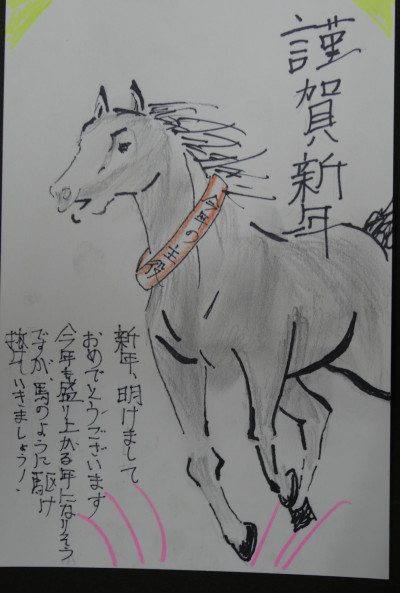 謹賀新年
今年の主役
新年、明けまして
おめでとうございます
今年も盛り上がる年になりそう
ですが、馬のように駆け
抜けていきましょう！